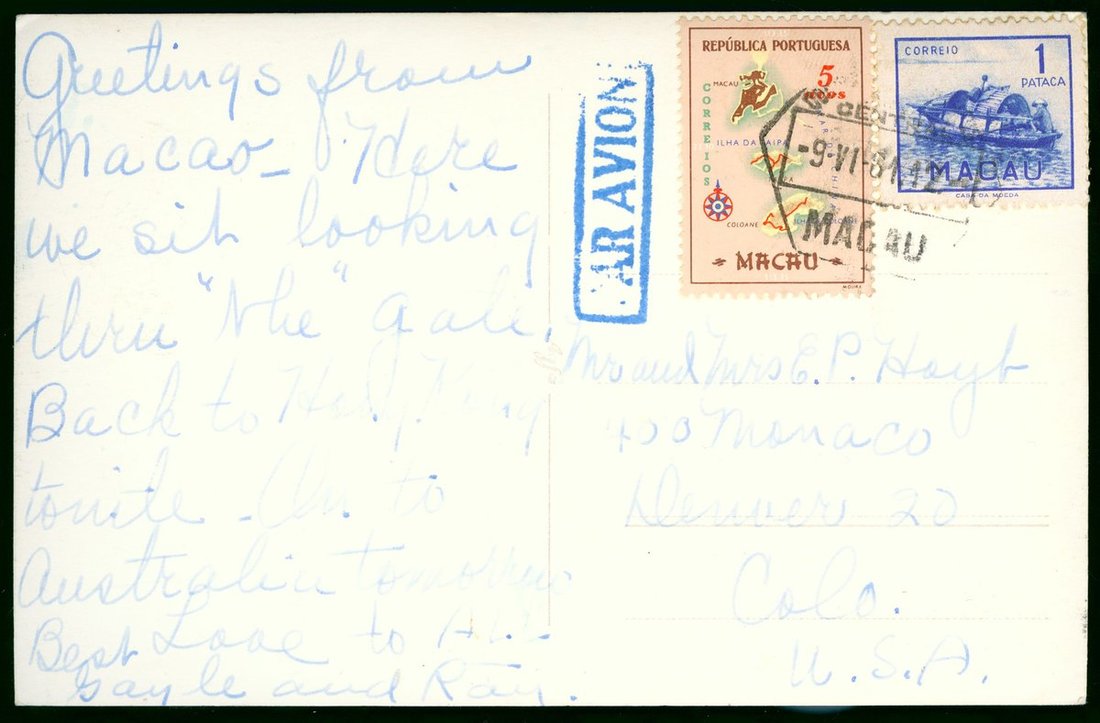 Greetings from
Macao - Here
we sit looking
thru "the" gate.
Back to Hong Kong
tonite - On to
Australia tomorrow
Best Love to All
Gayle and Ray.
PAR AVION
REPÚBLICA PORTUGUESA
5
avos
CORREIOS
MACAU
ILHA DA TAIPA
COLOANE
MACAU
MOURA
CORREIO
1
PATACA
MACAU
CASA DA MOEDA
CENTRAL
-9-VI-61-12
MACAU
Mr and Mrs E. P. Hoyt
400 Monaco
Denver 20
Colo.
U.S.A.